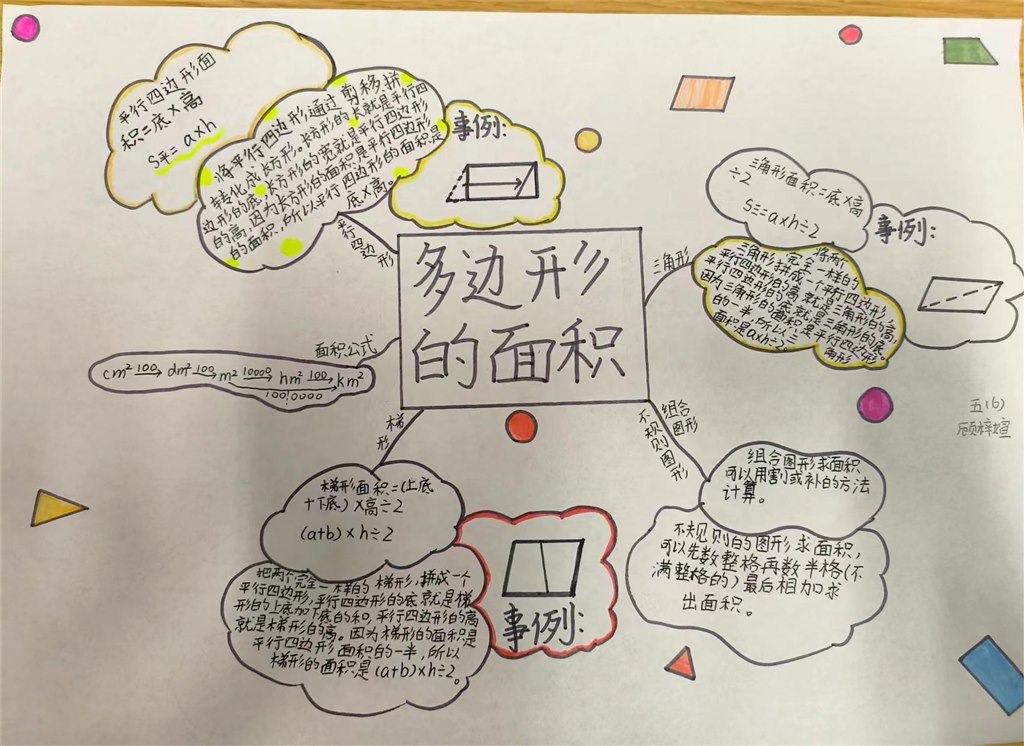 多边形
的面积
平行四边形
平行四边形面
积=底×高
S平=a×h
将平行四边形通过剪移拼
转化成长方形。长方形的长就是平行四
边形的底,长方形的宽就是平行四边形
的高,因为长方形的面积是平行四边形
的面积,所以平行四边形的面积是
底×高。
事例:
三角形
三角形面积=底×高
÷2
S==a×h÷2
将两个
完全一样的
三角形拼成一个平行四边形,
平行四边形的高就是三角形的高,
平行四边形的底就是三角形的底
因为三角形的面积是平行四边形
的一半,所以三角形
面积是a×h÷2。
事例:
面积公式
cm² 100 dm² 100 m² 10000 hm² 100 km²
1000000
梯形
梯形面积=(上底
+下底)×高÷2
(a+b)×h÷2
把两个完全一样的梯形,拼成一个
平行四边形,平行四边形的底就是梯
形的上底加下底的和,平行四边形的高
就是梯形的高。因为梯形的面积是
平行四边形面积的一半,所以
梯形的面积是(a+b)×h÷2。
事例:
组合图形
不规则图形
组合图形求面积
可以用割或补的方法
计算。
不规则的图形求面积,
可以先数整格再数半格(不
满整格的)最后相加求
出面积。
五(6)
顾梓煊